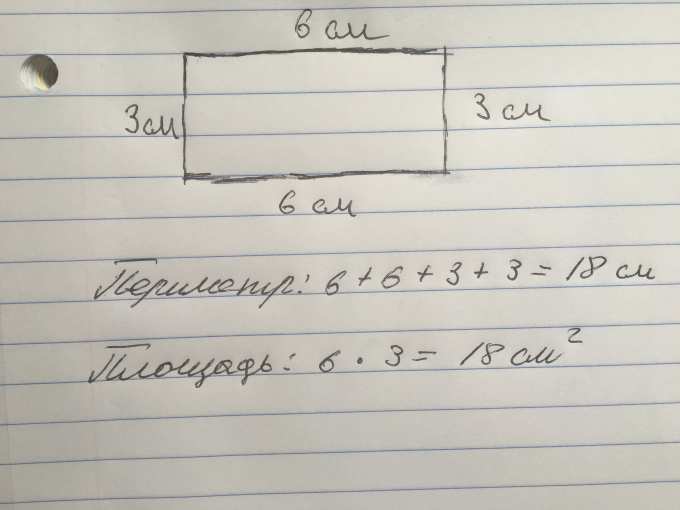 6 см
3 см
3 см
6 см
Периметр: 6 + 6 + 3 + 3 = 18 см
Площадь: 6 · 3 = 18 см²